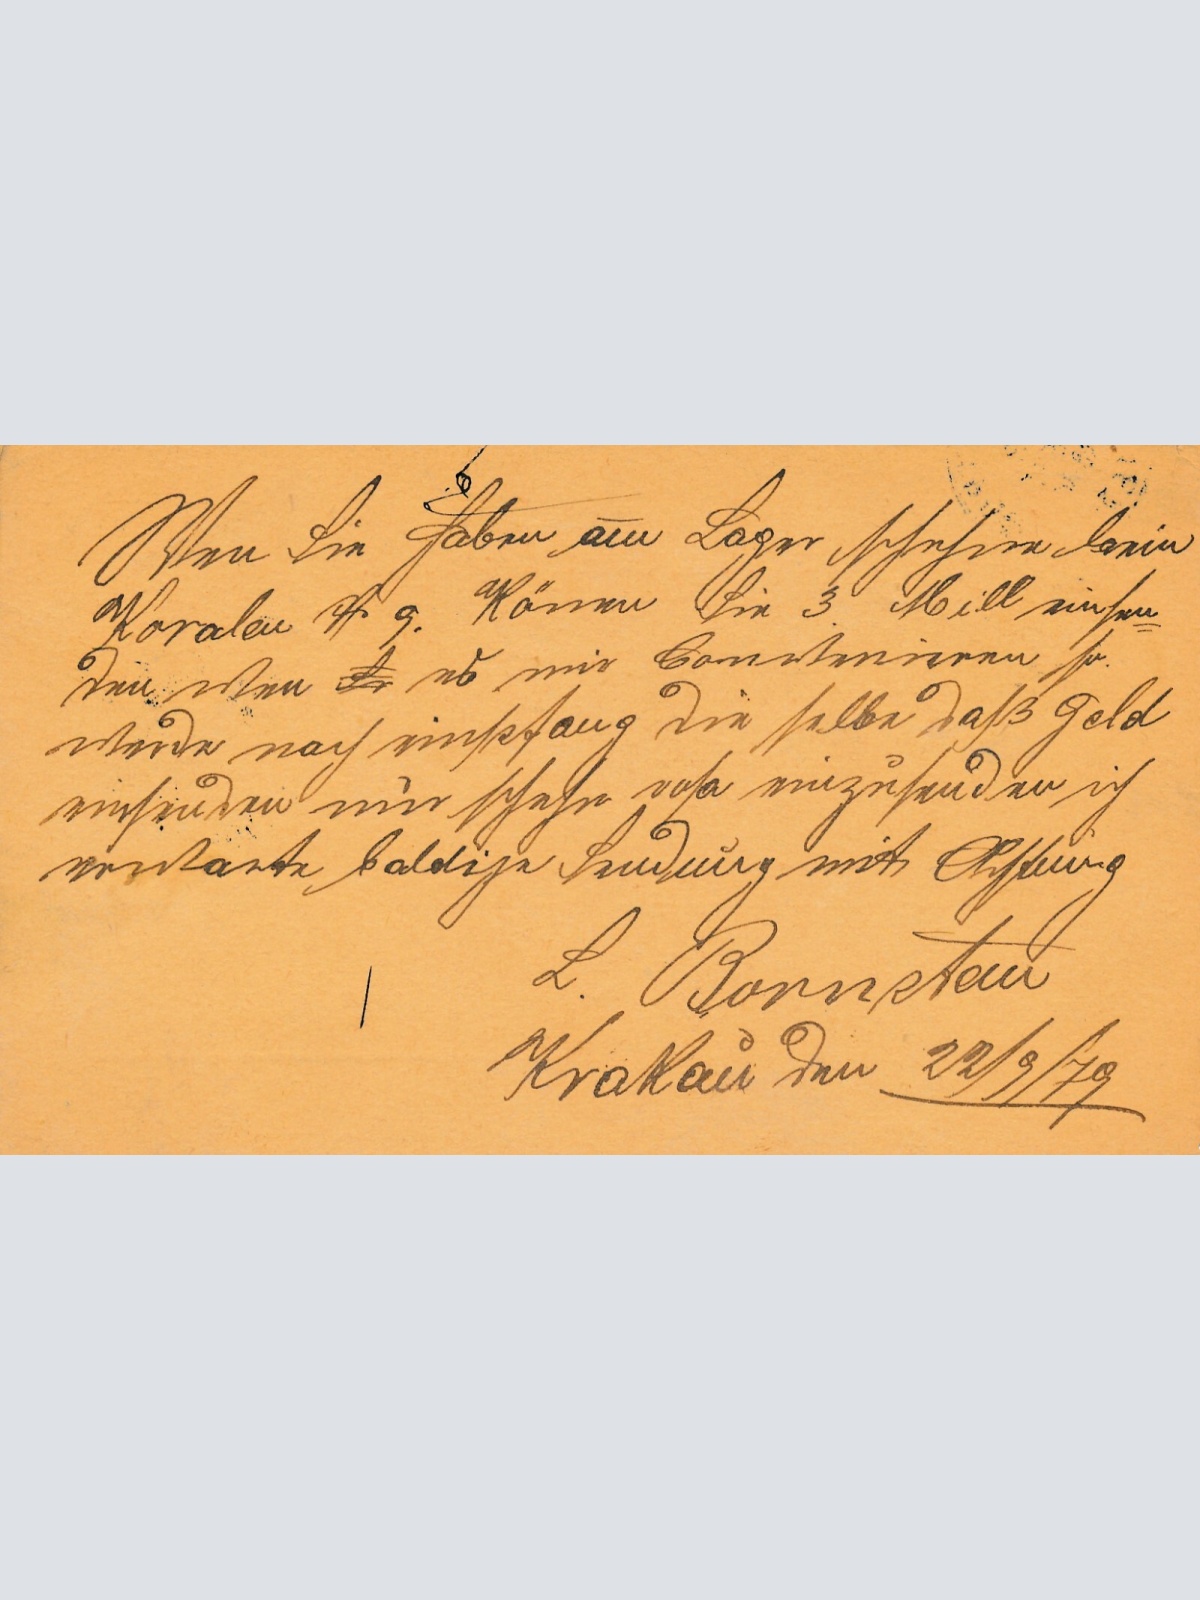 Wen Sie haben am Lager schehne
Koralen № 9. Könen Sie 3 Mill einsen=
den wen es mir Conwenieren so
werde nach einspfang die selbe daß Geld
einsenden nur schehn rosa einzusenden ich
erwarte baldige Sendung mit Achtung
L. Bornstein
Krakau den 22/9/79